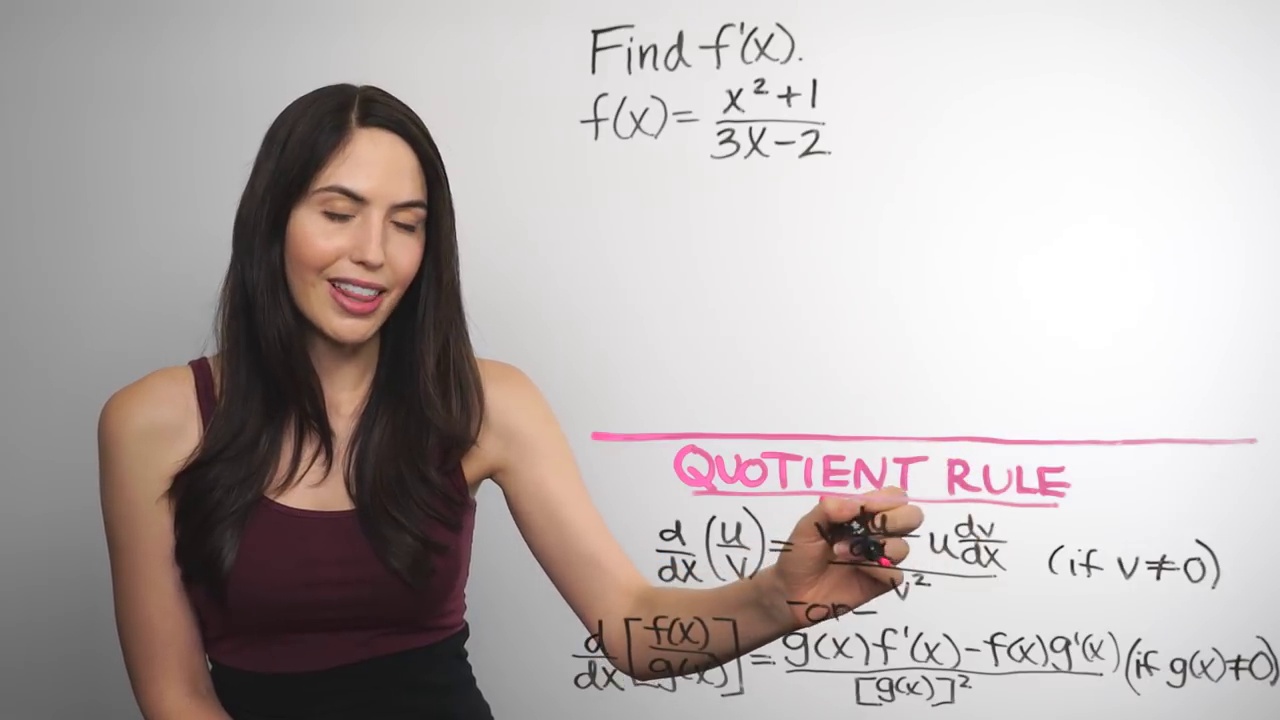 Find f'(x).
f(x) = x² + 1
3x - 2
QUOTIENT RULE
d/dx (u/v) = u dv/dx / v² (if v ≠ 0)
-or-
d/dx [f(x)/g(x)] = g(x)f'(x) - f(x)g'(x) / [g(x)]² (if g(x) ≠ 0)